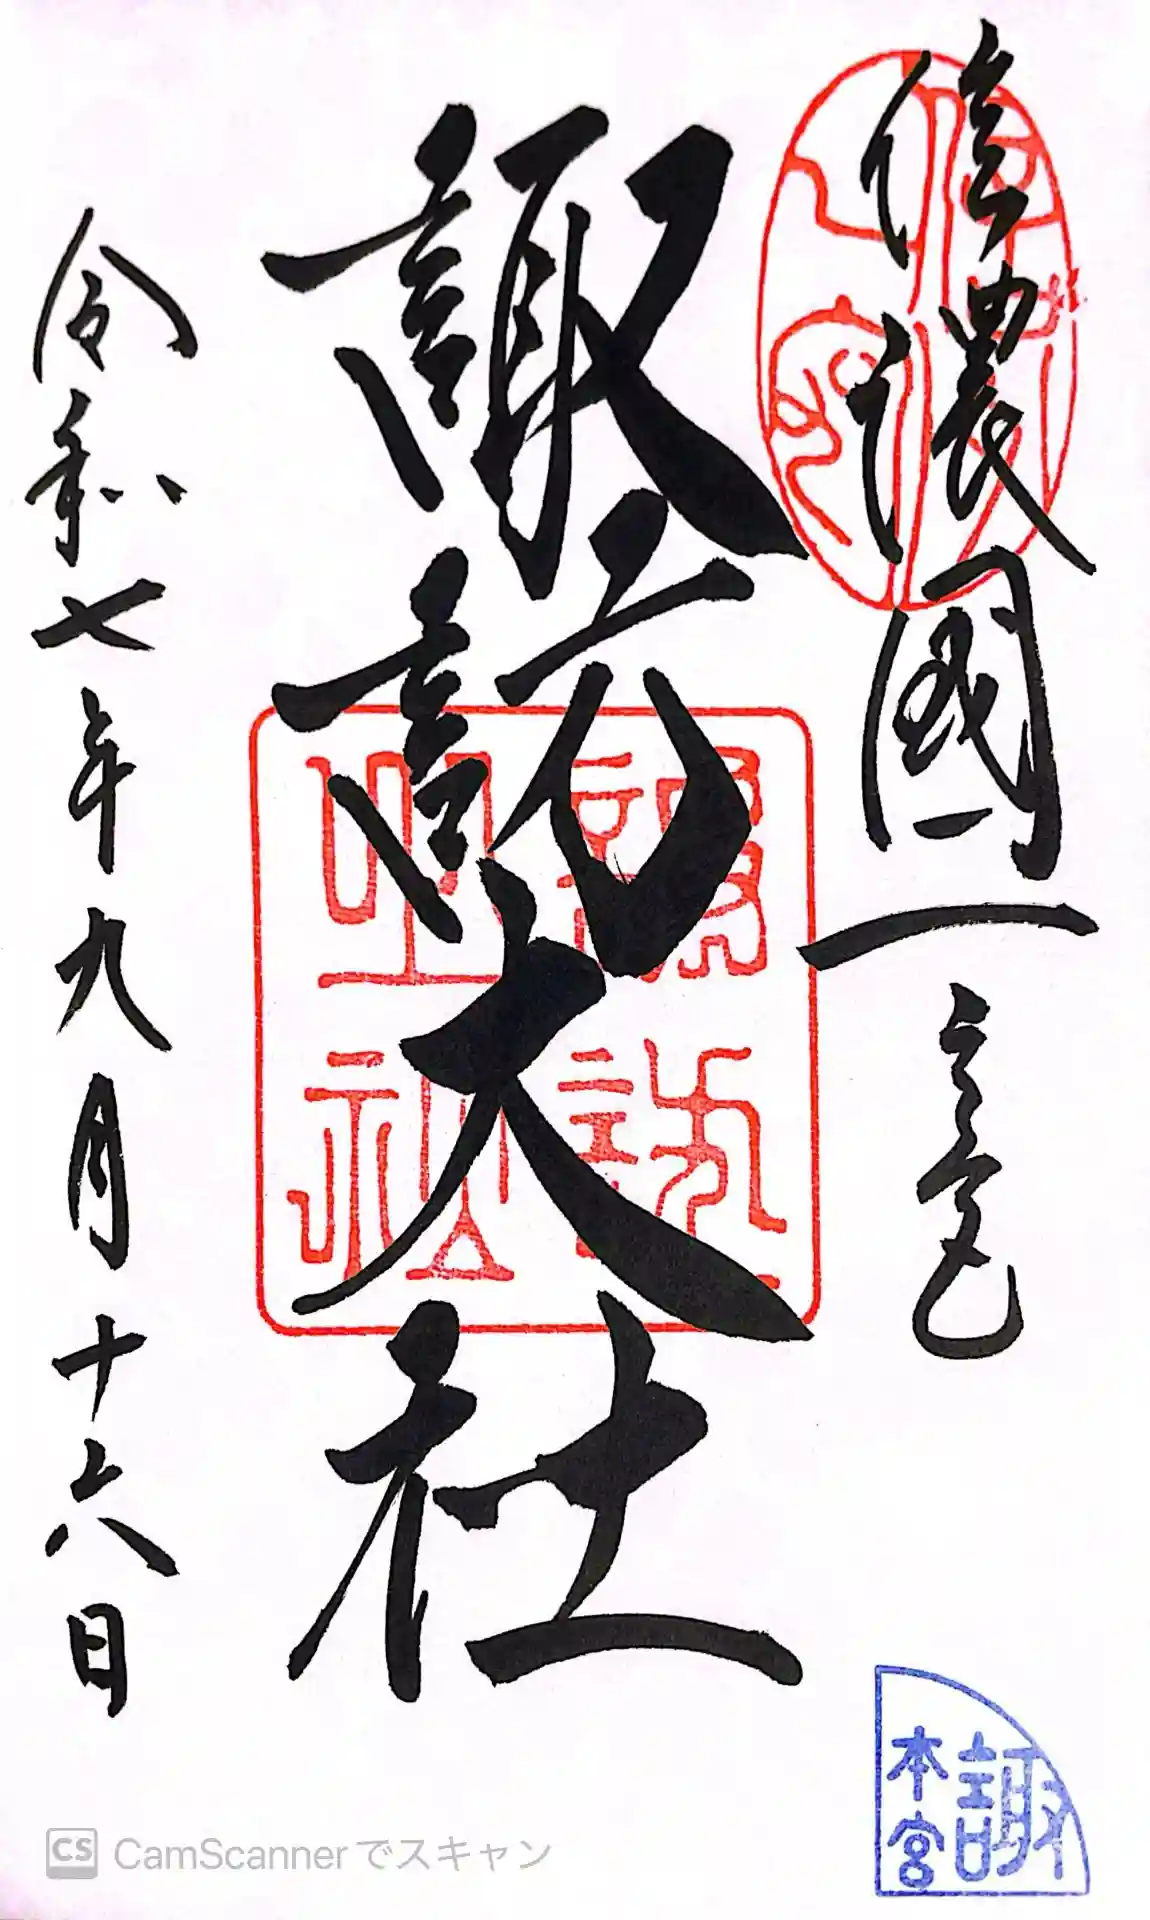 信濃國一之宮
諏訪大社
令和七年九月十六日
諏
本宮
CS CamScannerでスキャン